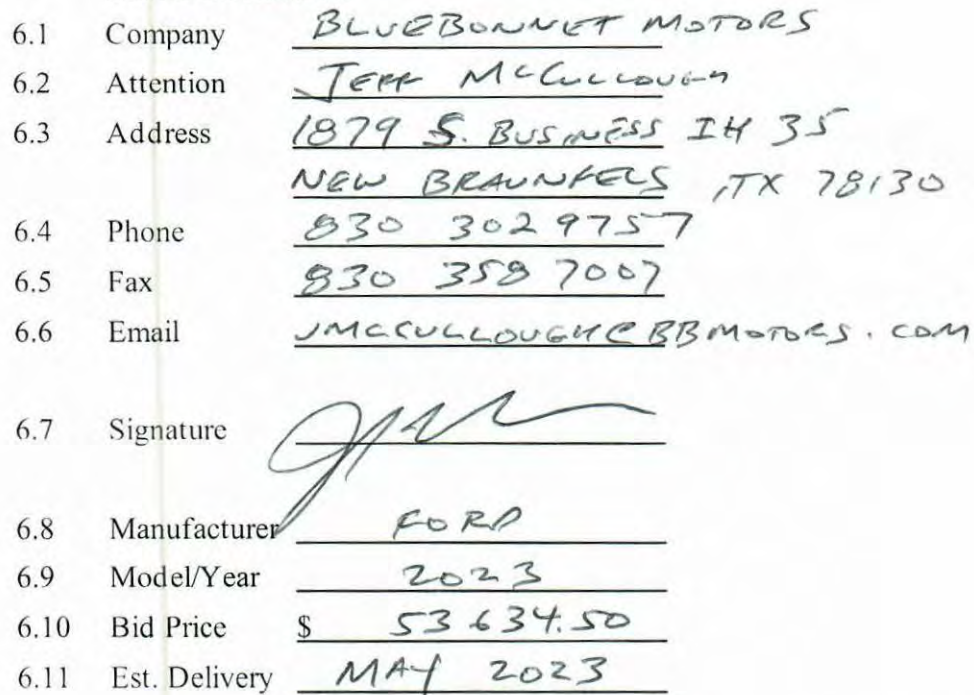 6.1 Company BLUEBONNET MOTORS
6.2 Attention JEFF MCCULLOUGH
6.3 Address 1879 S. BUSINESS IH 35
NEW BRAUNFELS, TX 78130
6.4 Phone 830 302 9757
6.5 Fax 830 358 7007
6.6 Email JMCCULLOUGH@BBMOTORS.COM
6.7 Signature
6.8 Manufacturer FORD
6.9 Model/Year 2023
6.10 Bid Price $ 53 634.50
6.11 Est. Delivery MAY 2023